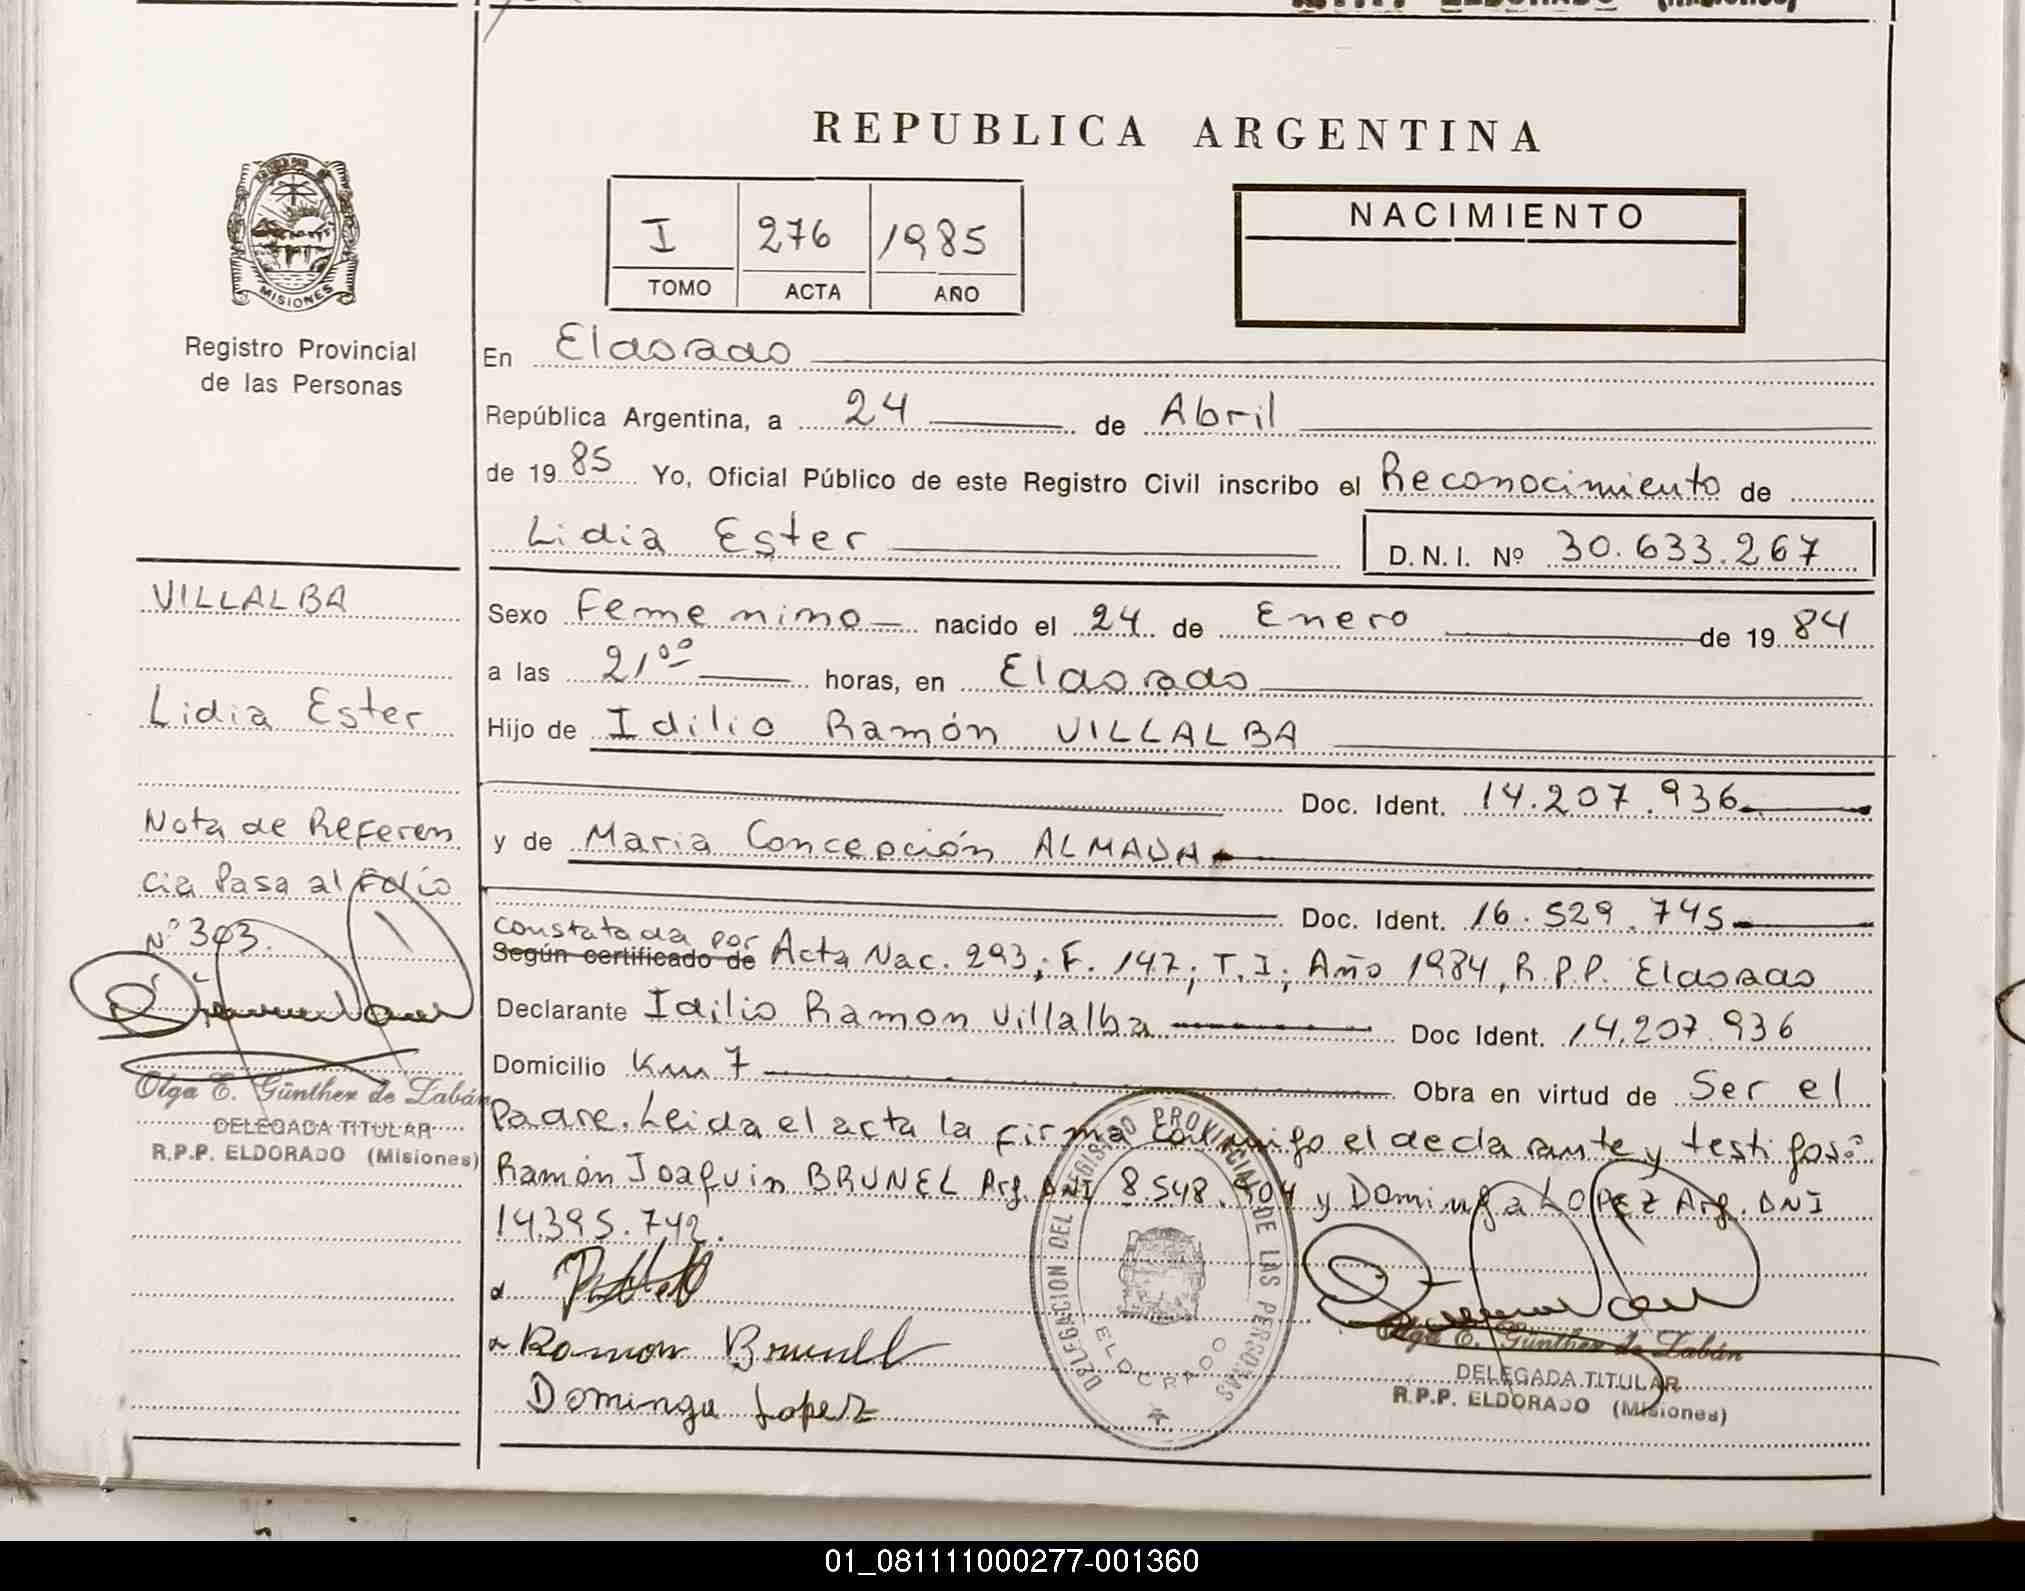 R.P.P. ELDORADO (Misiones)
REPUBLICA ARGENTINA
MISIONES
Registro Provincial
de las Personas
I 276 1985
TOMO ACTA AÑO
NACIMIENTO
En Eldorado
República Argentina, a 24 de Abril
de 1985 Yo, Oficial Público de este Registro Civil inscribo el Reconocimiento de
Lidia Ester D.N.I. Nº 30.633.267
Sexo Femenino nacido el 24 de Enero de 1984
a las 21ºº horas, en Eldorado
Hijo de Idilio Ramón VILLALBA
Doc. Ident. 14.207.936
y de Maria Concepción ALMADA
Doc. Ident. 16.529.745
constatada por
Según certificado de Acta Nac. 293; F. 147; T.I; Año 1984, R.P.P. Eldorado
Declarante Idilio Ramon Villalba Doc Ident. 14.207.936
Domicilio Km 7 Obra en virtud de Ser el
Padre. Leida el acta la firma conmigo el declarante y testigos:
Ramón Joaquin BRUNEL Arg. DNI 8.548.404 y Dominga LOPEZ Arg. DNI
14.395.742.
Ramon Brunell
Dominga Lopez
DELEGACION DEL REGISTRO PROVINCIAL DE LAS PERSONAS
ELDORADO
Olga E. Günther de Zabán
DELEGADA TITULAR
R.P.P. ELDORADO (Misiones)
VILLALBA
Lidia Ester
Nota de Referen
cia Pasa al Folio
Nº 303.
Olga E. Günther de Zabán
DELEGADA TITULAR
R.P.P. ELDORADO (Misiones)
01_081111000277-001360